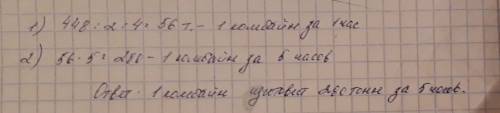 1) 448 : 2 : 4 = 56 т. - 1 комбайн за 1 час
2) 56 · 5 = 280 - 1 комбайн за 5 часов
Ответ: 1 комбайн изготовит тонн за 5 часов.